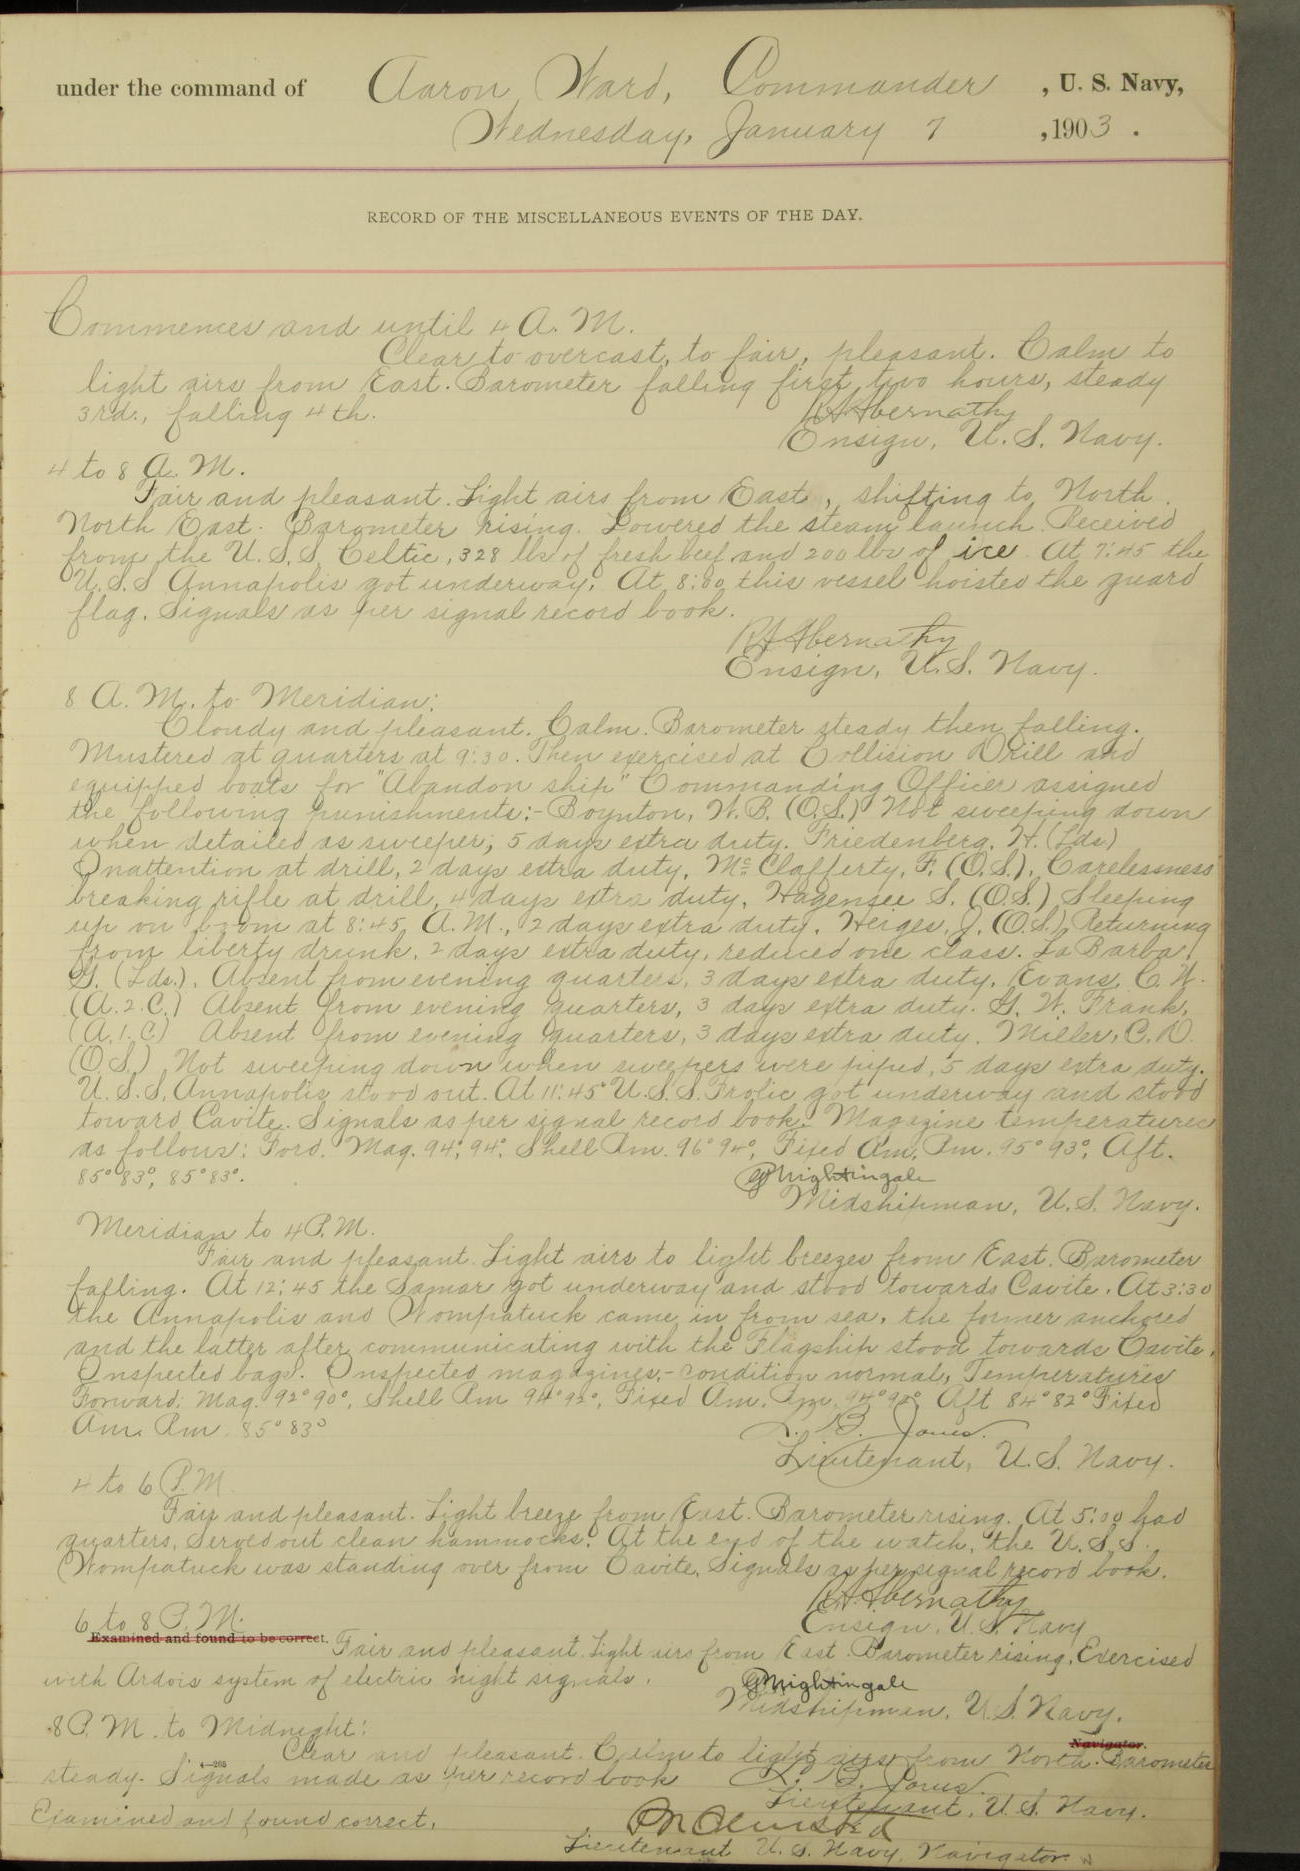 under the command of Aaron Ward, Commander , U. S. Navy,
Wednesday, January 7 , 1903 .
RECORD OF THE MISCELLANEOUS EVENTS OF THE DAY.
Commences and until 4 A. M.
Clear to overcast, to fair, pleasant. Calm to
light airs from East. Barometer falling first two hours, steady
3rd., falling 4th.
R.H. Abernathy
Ensign, U. S. Navy.
4 to 8 A. M.
Fair and pleasant. Light airs from East, shifting to North
North East. Barometer rising. Lowered the steam launch. Received
from the U. S. S Celtic, 328 lbs of fresh beef and 200 lbs of ice. At 7:45 the
U. S. S Annapolis got underway. At 8:00 this vessel hoisted the guard
flag. Signals as per signal record book.
R H Abernathy
Ensign, U. S. Navy.
8 A. M. to Meridian:
Cloudy and pleasant. Calm. Barometer steady then falling.
Mustered at quarters at 9:30. Then exercised at Collision Drill and
equipped boats for "Abandon ship" Commanding Officer assigned
the following punishments:- Boynton, W. B. (O.S.) Not sweeping down
when detailed as sweeper, 5 days extra duty. Friedenberg, H. (Lds)
Inattention at drill, 2 days extra duty, McClafferty, F. (O.S.), Carelessness
breaking rifle at drill, 4 days extra duty, Hagensee S. (O.S.) Sleeping
up on boom at 8:45 A. M., 2 days extra duty. Heiges, J. (O.S.) Returning
from liberty drunk, 2 days extra duty, reduced one class. La Barba,
G. (Lds.), Absent from evening quarters, 3 days extra duty. Evans, C. W.
(A. 2. C.) Absent from evening quarters, 3 days extra duty. G. W. Frank,
(A. 1. C) Absent from evening quarters, 3 days extra duty. Miller, C. O.
(O.S.) Not sweeping down when sweepers were piped, 5 days extra duty.
U. S. S. Annapolis stood out. At 11:45 U. S. S. Frolic got underway and stood
toward Cavite. Signals as per signal record book. Magazine temperatures
as follows: Ford. Mag. 94°, 94°, Shell Rm. 96° 94°, Fixed Am. Rm. 95° 93°, Aft.
85° 83°, 85° 83°.
Nightingale
Midshipman, U. S. Navy.
Meridian to 4 P. M.
Fair and pleasant. Light airs to light breezes from East. Barometer
falling. At 12:45 the Samar got underway and stood towards Cavite. At 3:30
the Annapolis and Wompatuck came in from sea, the former anchored
and the latter after communicating with the Flagship stood towards Cavite.
Inspected bags. Inspected magazines,- condition normal, Temperatures
Forward: Mag. 92° 90°, Shell Rm 94° 92°, Fixed Am. Rm. 94° 92° Aft 84° 82° Fixed
Am. Rm. 85° 83°
L. B. Jones.
Lieutenant, U. S. Navy.
4 to 6 P. M.
Fair and pleasant. Light breeze from East. Barometer rising. At 5:00 had
quarters, served out clean hammocks. At the end of the watch, the U. S. S.
Wompatuck was standing over from Cavite. Signals as per signal record book.
R. H. Abernathy
Ensign, U. S. Navy
6 to 8 P. M.
Examined and found to be correct.
Fair and pleasant. Light airs from East. Barometer rising. Exercised
with Ardois system of electric night signals.
Nightingale
Midshipman, U. S. Navy.
8 P. M. to Midnight:
Navigator.
Clear and pleasant. Calm to light airs from North. Barometer
steady. Signals made as per record book
L. B. Jones.
Lieutenant, U. S. Navy.
Examined and found correct.
Olmsted
Lieutenant U. S. Navy, Navigator.